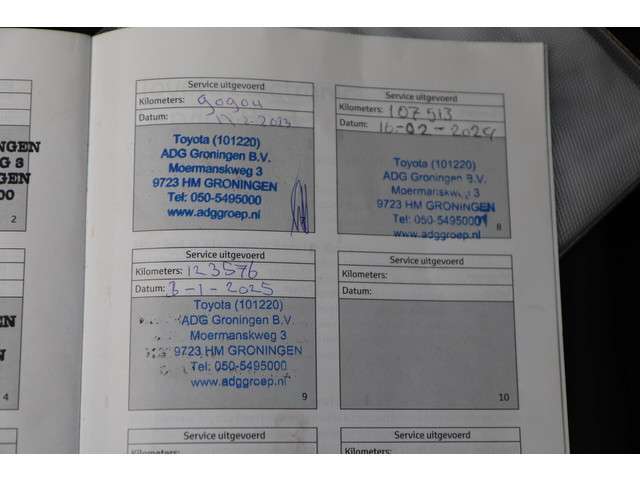 Service uitgevoerd
Kilometers: 90904
Datum: 2-2023
Toyota (101220)
ADG Groningen B.V.
Moermanskweg 3
9723 HM GRONINGEN
Tel: 050-5495000
www.adggroep.nl
Service uitgevoerd
Kilometers: 107513
Datum: 16-02-2024
Toyota (101220)
ADG Groningen B.V.
Moermanskweg 3
9723 HM GRONINGEN
Tel: 050-5495000
www.adggroep.nl
8
Service uitgevoerd
Kilometers: 123576
Datum: 3-1-2025
Toyota (101220)
ADG Groningen B.V.
Moermanskweg 3
9723 HM GRONINGEN
Tel: 050-5495000
www.adggroep.nl
9
Service uitgevoerd
Kilometers:
Datum:
10
Service uitgevoerd
Kilometers:
Service uitgevoerd
Kilometers:
NINGEN
G 8
GEN
00
2
EN
EN
4